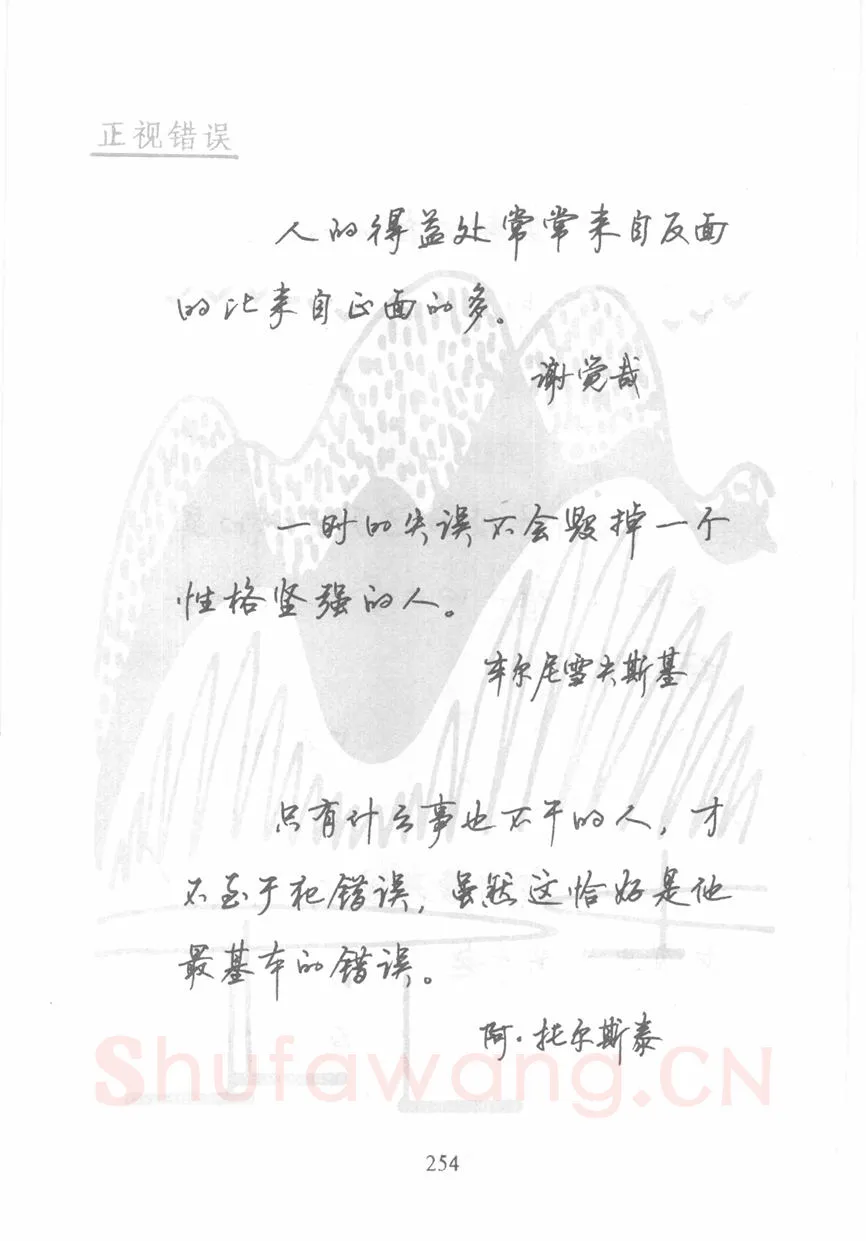 正视错误
人的得益处常常来自反面
的比来自正面的多。
谢觉哉
一时的失误不会毁掉一个
性格坚强的人。
车尔尼雪夫斯基
只有什么事也不干的人，才
不至于犯错误，虽然这恰好是他
最基本的错误。
阿·托尔斯泰
Shufawang.CN
254